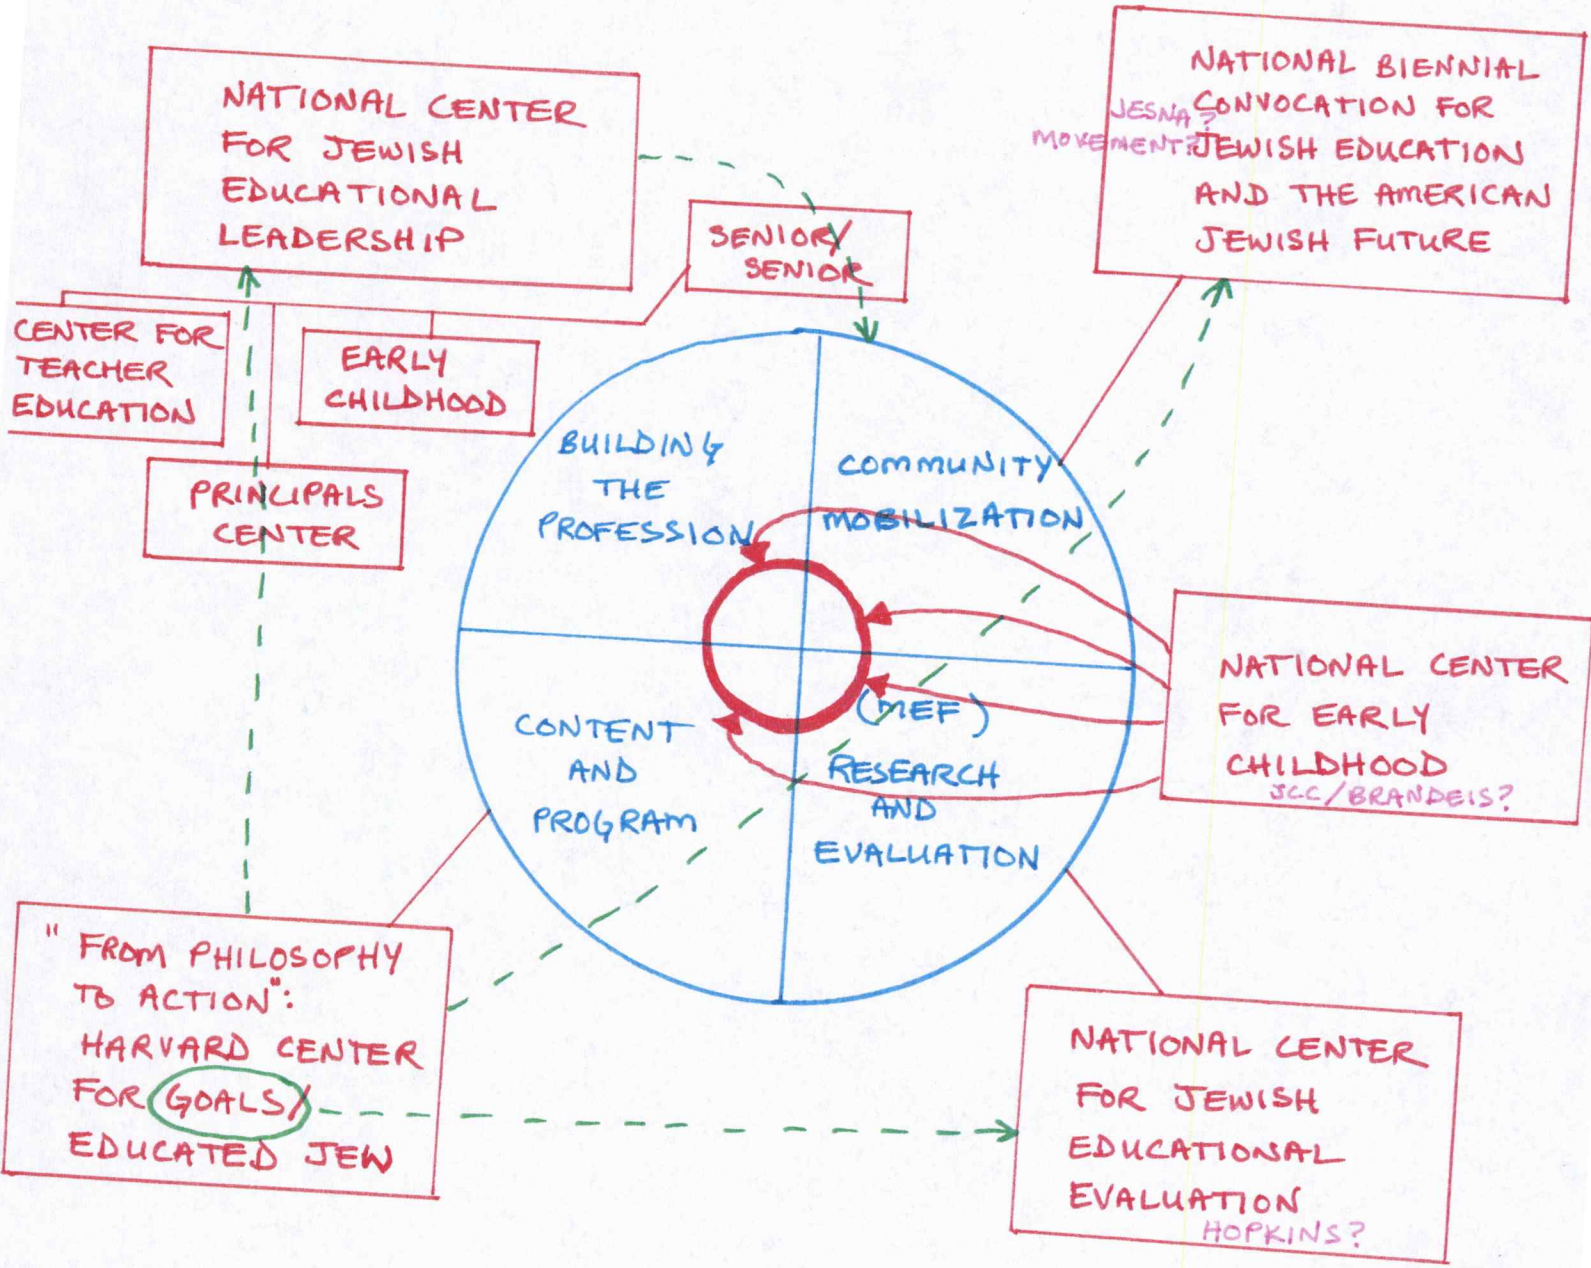 NATIONAL CENTER
FOR JEWISH
EDUCATIONAL
LEADERSHIP
SENIOR/
SENIOR
NATIONAL BIENNIAL
CONVOCATION FOR
JEWISH EDUCATION
AND THE AMERICAN
JEWISH FUTURE
JESNA?
MOVEMENT?
CENTER FOR
TEACHER
EDUCATION
EARLY
CHILDHOOD
PRINCIPALS
CENTER
BUILDING
THE
PROFESSION
COMMUNITY
MOBILIZATION
CONTENT
AND
PROGRAM
(MEF)
RESEARCH
AND
EVALUATION
NATIONAL CENTER
FOR EARLY
CHILDHOOD
JCC/BRANDEIS?
"FROM PHILOSOPHY
TO ACTION":
HARVARD CENTER
FOR GOALS/
EDUCATED JEW
NATIONAL CENTER
FOR JEWISH
EDUCATIONAL
EVALUATION
HOPKINS?